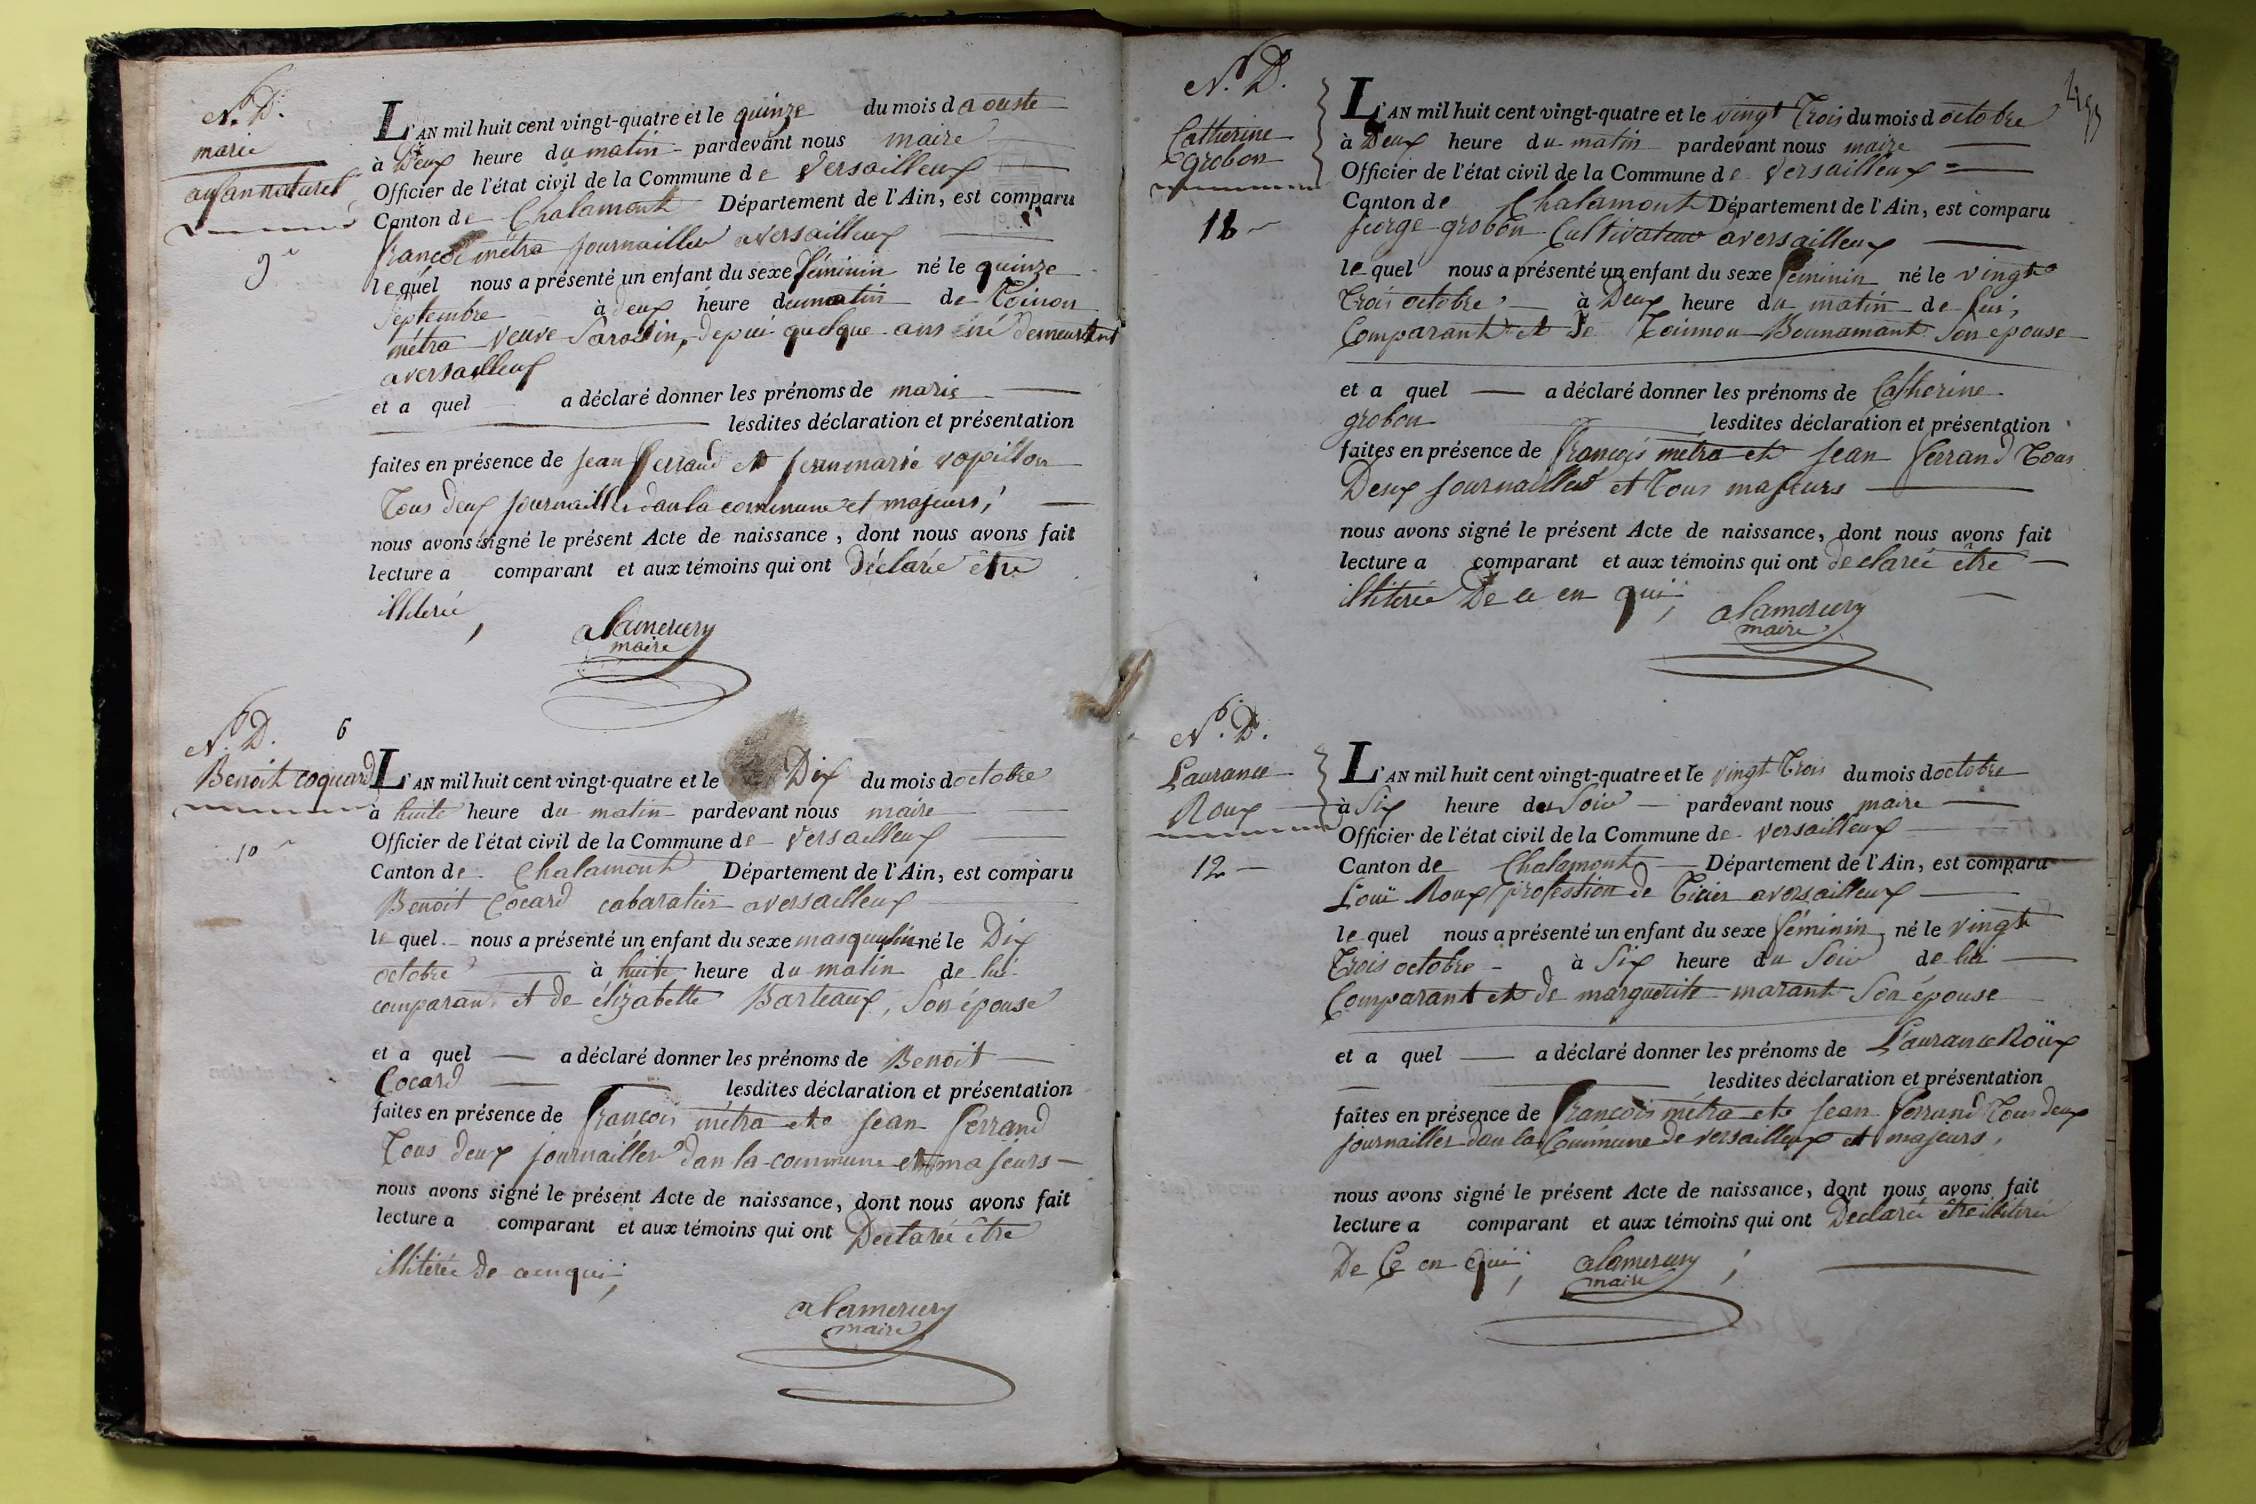 N. D.
marie
anfan naturel
9
L'AN mil huit cent vingt-quatre et le quinze du mois d aouste
à Deux heure du matin pardevant nous maire
Officier de l'état civil de la Commune de Versailleux
Canton de Chalamont Département de l'Ain, est comparu
françois métra journailler aversailleux
le quel nous a présenté un enfant du sexe féminin né le quinze
septembre à deux heure du matin de Toinon
métra veuve depui quelque ans demeurant
aversailleux
et a quel a déclaré donner les prénoms de marie
lesdites déclaration et présentation
faites en présence de jean ferrand et jeanmarie papillon
Tous deux journailler dan la commune et majeurs,
nous avons signé le présent Acte de naissance, dont nous avons fait
lecture a comparant et aux témoins qui ont déclaré être
illiterée,
alamercery
maire
N. D. 6
Benoit coquard
10
L'AN mil huit cent vingt-quatre et le Dix du mois d octobre
à huite heure du matin pardevant nous maire
Officier de l'état civil de la Commune de Versailleux
Canton de Chalamont Département de l'Ain, est comparu
Benoit Cocard cabaratier aversailleux
le quel nous a présenté un enfant du sexe masqulin né le Dix
octobre à huite heure du matin de lui
comparant et de élizabette Barteaux, Son épouse
et a quel a déclaré donner les prénoms de Benoit
Cocard lesdites déclaration et présentation
faites en présence de françois métra et jean ferrand
Tous deux journailler dan la commune et majeurs
nous avons signé le présent Acte de naissance, dont nous avons fait
lecture a comparant et aux témoins qui ont Déclaré être
illiterée de ceenqui,
alamercery
maire
N. D.
Catherine
Grobon
11
L'AN mil huit cent vingt-quatre et le vingt Trois du mois d octobre
à Deux heure du matin pardevant nous maire
Officier de l'état civil de la Commune de Versailleux
Canton de Chalamont Département de l'Ain, est comparu
jeorge grobon Cultivateur aversailleux
le quel nous a présenté un enfant du sexe féminin né le vingt
Trois octobre à Deux heure du matin de lui,
Comparant et de Toinnon Bounamant Son epouse
et a quel a déclaré donner les prénoms de Catherine
grobon lesdites déclaration et présentation
faites en présence de françois métra et jean ferrand Tous
Deux journailler et Tous majeurs
nous avons signé le présent Acte de naissance, dont nous avons fait
lecture a comparant et aux témoins qui ont declareé être
illiterée De ce en qui,
alamercery
maire
N. D.
Laurance
Roux
12
L'AN mil huit cent vingt-quatre et le vingt Trois du mois d octobre
à Six heure du Soir pardevant nous maire
Officier de l'état civil de la Commune de Versailleux
Canton de Chalamont Département de l'Ain, est comparu
Louï Roux profession de Ticier aversailleux
le quel nous a présenté un enfant du sexe féminin né le vingt
Trois octobre à Six heure du Soir de lui
Comparant et de marguerite marant Son épouse
et a quel a déclaré donner les prénoms de Laurance Roüx
lesdites déclaration et présentation
faites en présence de françois métra et jean ferrand Tous deux
journailler dan la Commune de versailleux et majeurs,
nous avons signé le présent Acte de naissance, dont nous avons fait
lecture a comparant et aux témoins qui ont Declareé être illiterée
De Ce en qui, alamercery
maire